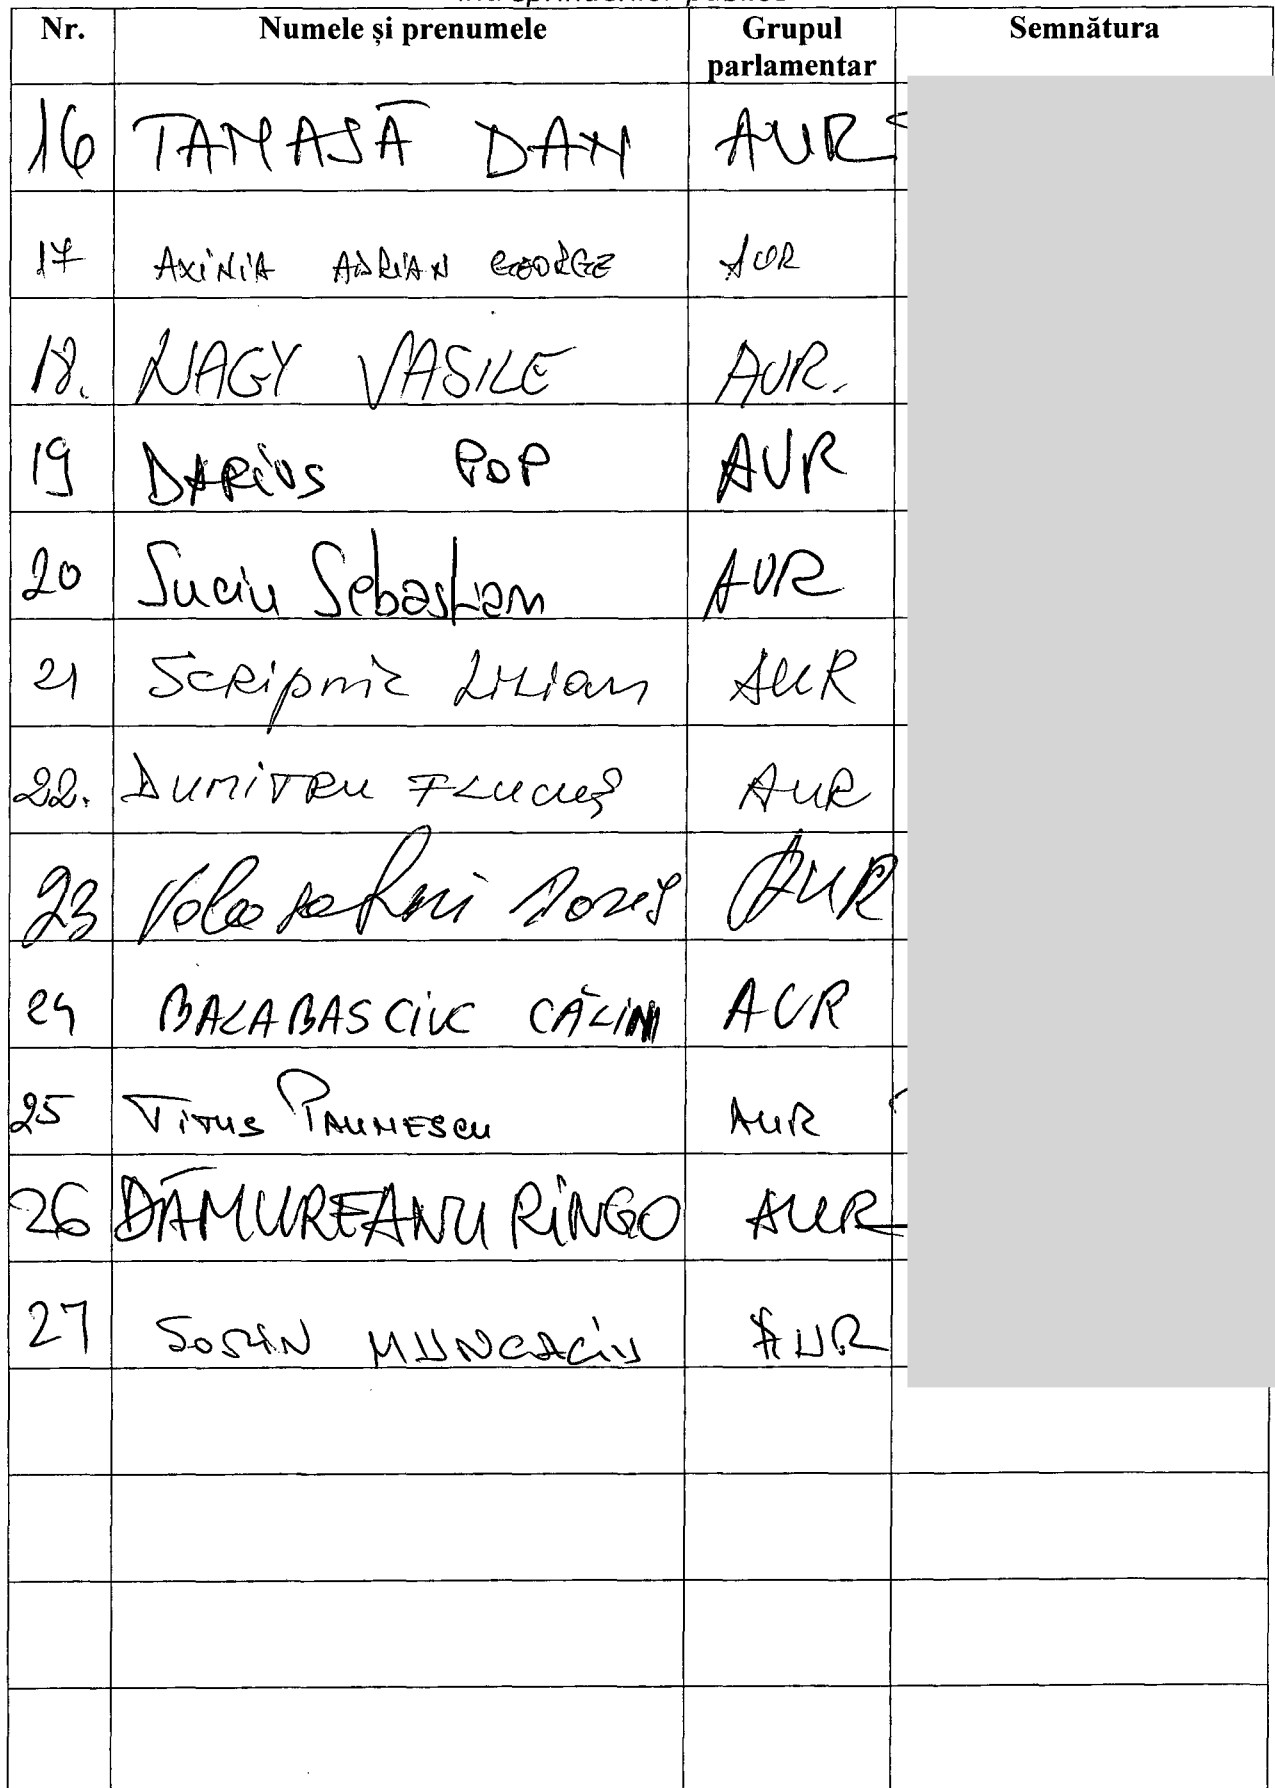 întreprinderilor publice
Nr. Numele și prenumele Grupul parlamentar Semnătura
16 TANASĂ DAN AUR
17 AXINIA ADRIAN GEORGE AUR
18. NAGY VASILE AUR.
19 DARIUS POP AUR
20 Suciu Sebastian AUR
21 Scripnic Lilian AUR
22. DUMITRU FLUCUȘ AUR
23 AUR
24 BALABASCIUC CĂLIN AUR
25 TITUS PAUNESCU AUR
26 DĂMUREANU RINGO AUR
27 SORIN MUNCACIU AUR